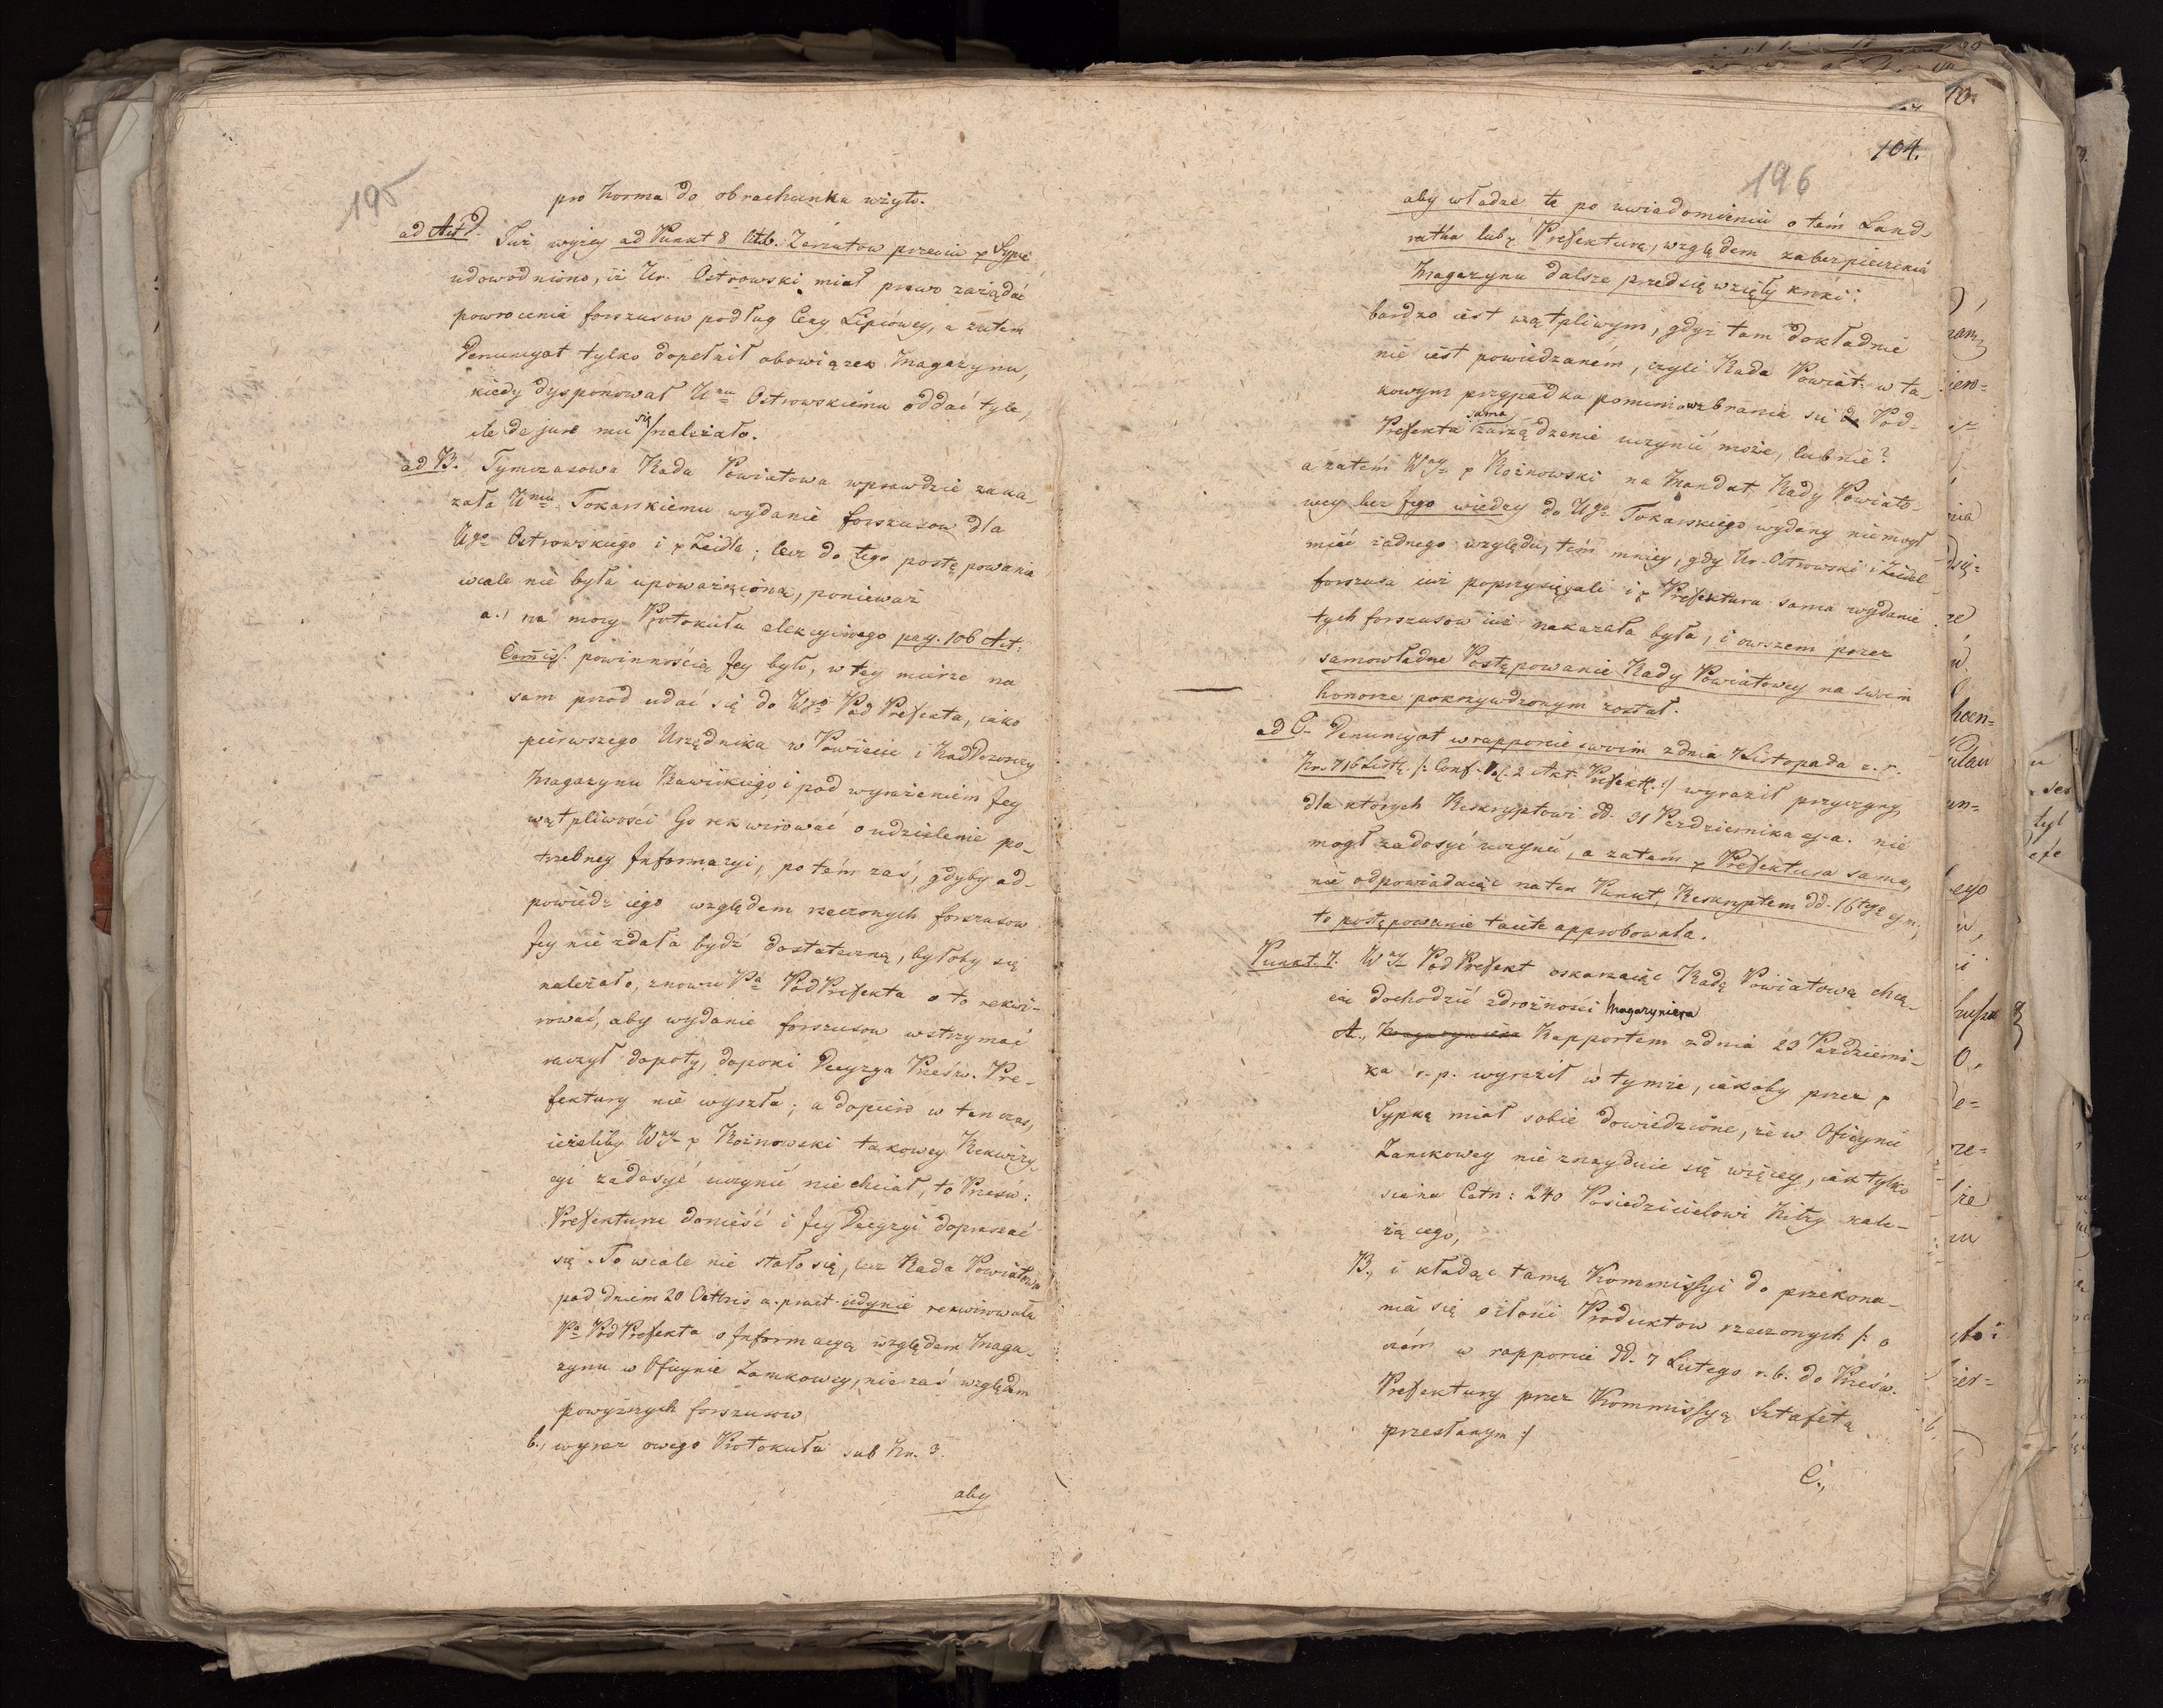 195
pro Norma do obrachunku użyto.
ad Art d. Już wyżey ad Punkt 8 Litb. Zarzutow przeciw p Sypce
udowodniono, iż Ur. Ostrowski miał prawo zażądać
powrocenia forszusow podług Ceny Lipcowey, a zatem
Denuncyat tylko dopełnił obowiązek Magazynu,
kiedy dysponował Urmu Ostrowskiemu oddać tyle,
ile de jure mu się należało.
ad B. Tymczasowa Rada Powiatowa wprawdzie zaka-
zała Umu Tokarskiemu wydanie forszusow dla
Ugo Ostrowskiego i p Zeidla; lecz do tego postępowania
wcale nie była upoważnioną, ponieważ
a., na mocy Protokułu elekcyinego pag. 106 Act.
Commis. powinnością Jey było, w tey mierze na
sam przod udać się do Wgo Pod Prefekta, iako
pierwszego Urzędnika w Powiecie i Nad Dozorcy
Magazynu Rawickiego, i pod wyrażeniem Jey
wątpliwości Go rekwirować o udzielenie po-
trzebney Informacyi, potém zaś, gdyby od-
powiedź iego względem rzeczonych forszusow
Jey nie zdała bydź dostateczną, byłoby się
należało, znowu Pa PodPrefekta o to rekwi-
rować, aby wydanie forszusow wstrzymać
raczył dopoty, dopoki Decyzya Prześw. Pre-
fektury nie wyszła; a dopiero w ten czas,
ieżeliby Wy p Rożnowski takowey Rekwizy-
cyi zadosyć uczynić nie chciał, to Prześw:
Prefekturze donieść i Jey Decyzyi dopraszać
się. To wcale nie stało się, lecz Rada Powiatowa
pod dniem 20 Octbris a. praet. iedynie rekwirowała
Pa Pod Prefekta o Informacyą względem Maga-
zynu w Oficynie Zamkowey, nie zaś względem
powyższych forszusow
b., wyraz owego Protokułu sub Nr. 3.
aby
104.
196
aby władze te po uwiadomieniu o tém Land-
ratka lub p Prefekturą, względem zabezpieczenia
Magazynu dalsze przedsięwzięły kroki:
bardzo iest wątpliwym, gdyż tam dokładnie
nie iest powiedzaném, czyli Rada Powiat: w ta-
kowym przypadku pomimo wzbrania się Pod-
Prefekta sama zarządzenie uczynić może, lub nie?
a zatém Wy p Rożnowski na Mandat Rady Powiato-
wey bez Jego wiedzy do Ugo Tokarskiego wydany nie mogł
mieć żadnego względu, tém mniey, gdy Ur. Ostrowski i Zeidel
forszusa iuż poprzysięgali i p Prefektura sama wydanie
tych forszusow iuż nakazała była, i owszem przez
samowładne Postępowanie Rady Powiatowey na swoim
honorze pokrzywdzonym został.
ad C. Denuncyat w rapporcie swoim z dnia 7 Listopada r. p.
Nr. 716 /: Conf. Vol. 2 Akt. Prefekt. :/ wyraził przyczyny,
dla których Reskryptowi dd. 31 Pazdziernika ej. a. nie
mogł zadosyć uczynić, a zatem p Prefektura sama,
nie odpowiadaiąc na ten Punkt, Reskryptem dd. 16tego ej. m.,
to postępowanie tacite approbowała.
Punkt. 7. Wy Pod Prefekt oskarzaiąc Radę Powiatową chcą-
cą dochodzić zdrożności Magazyniera
A., Rapportem z dnia 29 Pazdzierni-
ka r. p. wyraził w tymże, iakoby przez p
Sypkę miał sobie dowiedzione, że w Oficynie
Zamkowey nie znayduie się więcey, iak tylko
siana Cetn: 240 Posiedzicielowi Kitzy nale-
żącego,
B., i kładąc tamę Kommissyi do przekona-
nia się o ilości Produktow rzeczonych /: o
czém w rapporcie dd. 7 Lutego r. b. do Prześw.
Prefektury przez Kommissyą Sztafetą
przesłanym :/
C.,